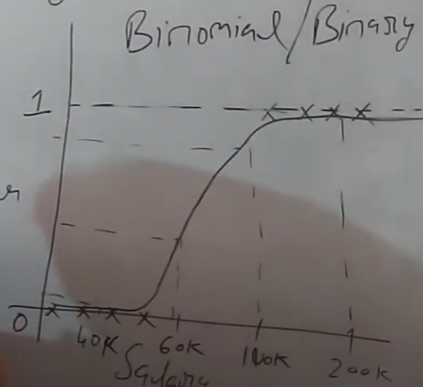 Binomial/Binary
1
0
40K 60K 100K 200K
Salary